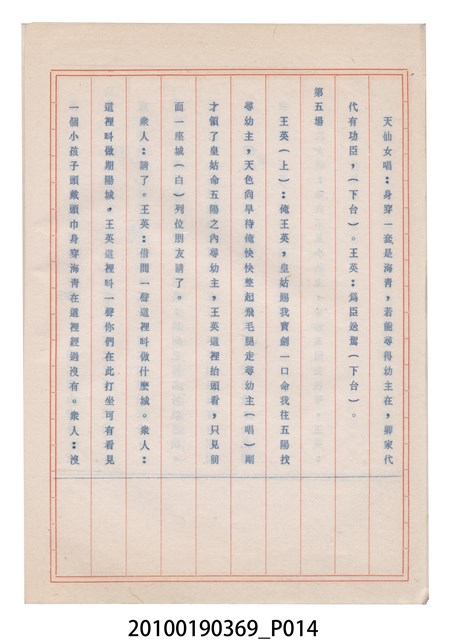 天仙女唱：身穿一套是海青，若能尋得幼主在，卿家代
代有功臣，（下台）。王英：爲臣送駕（下台）。
第五場
王英（上）：俺王英，皇姑賜我寶劍一口命我往五陽找
尋幼主，天色尚早待俺快快整起飛毛腿走尋幼主（唱）剛
才領了皇姑命五陽之內尋幼主，王英這裡抬頭看，只見前
面一座城（白）列位朋友請了。
衆人：請了。王英：借問一聲這裡呌做什麽城。衆人：
這裡呌做期陽城。王英這裡呌一聲你們在此打坐可有看見
一個小孩子頭戴頭巾身穿海青在這裡經過沒有。衆人：沒
20100190369_P014